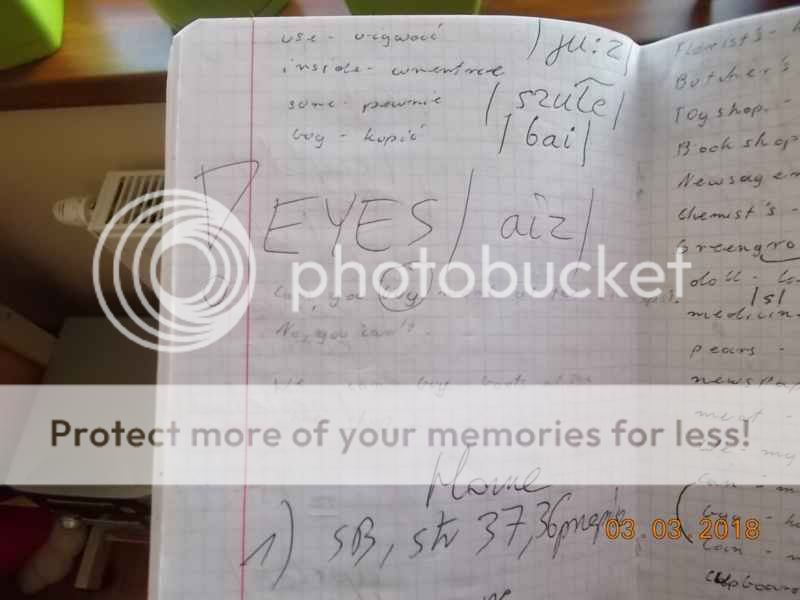 use - używać |ju:z|
inside - wewnątrz
sure - pewnie | szułe |
buy - kupić | bai |
EYES | aiz |
photobucket
No, you can't.
We can buy boots at the
Protect more of your memories for less!
Home
1) SB, str 37, 36
03.03.2018
Florist's -
Butcher's
Toy shop -
Book shop
Newsagen
Chemist's -
Greengro
doll - 
|s|
medicin
pears -
newspap
meat -
can - m
buy - k
can - m
cupboard